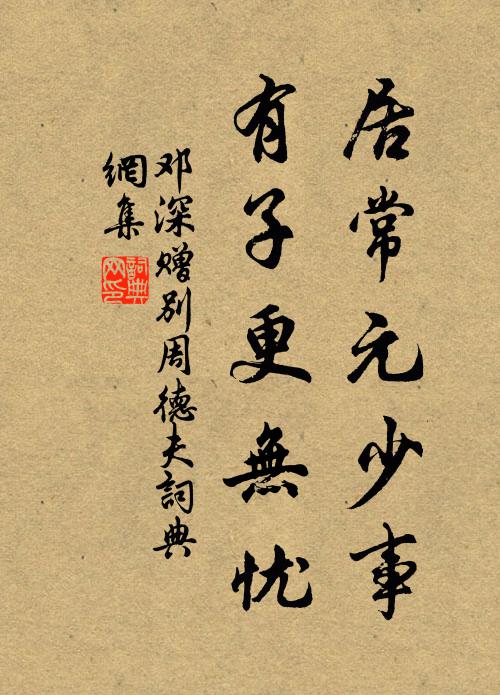 居常元少事
有子更無忧
邓深赠别周德夫詞典
網集
詞典
网印